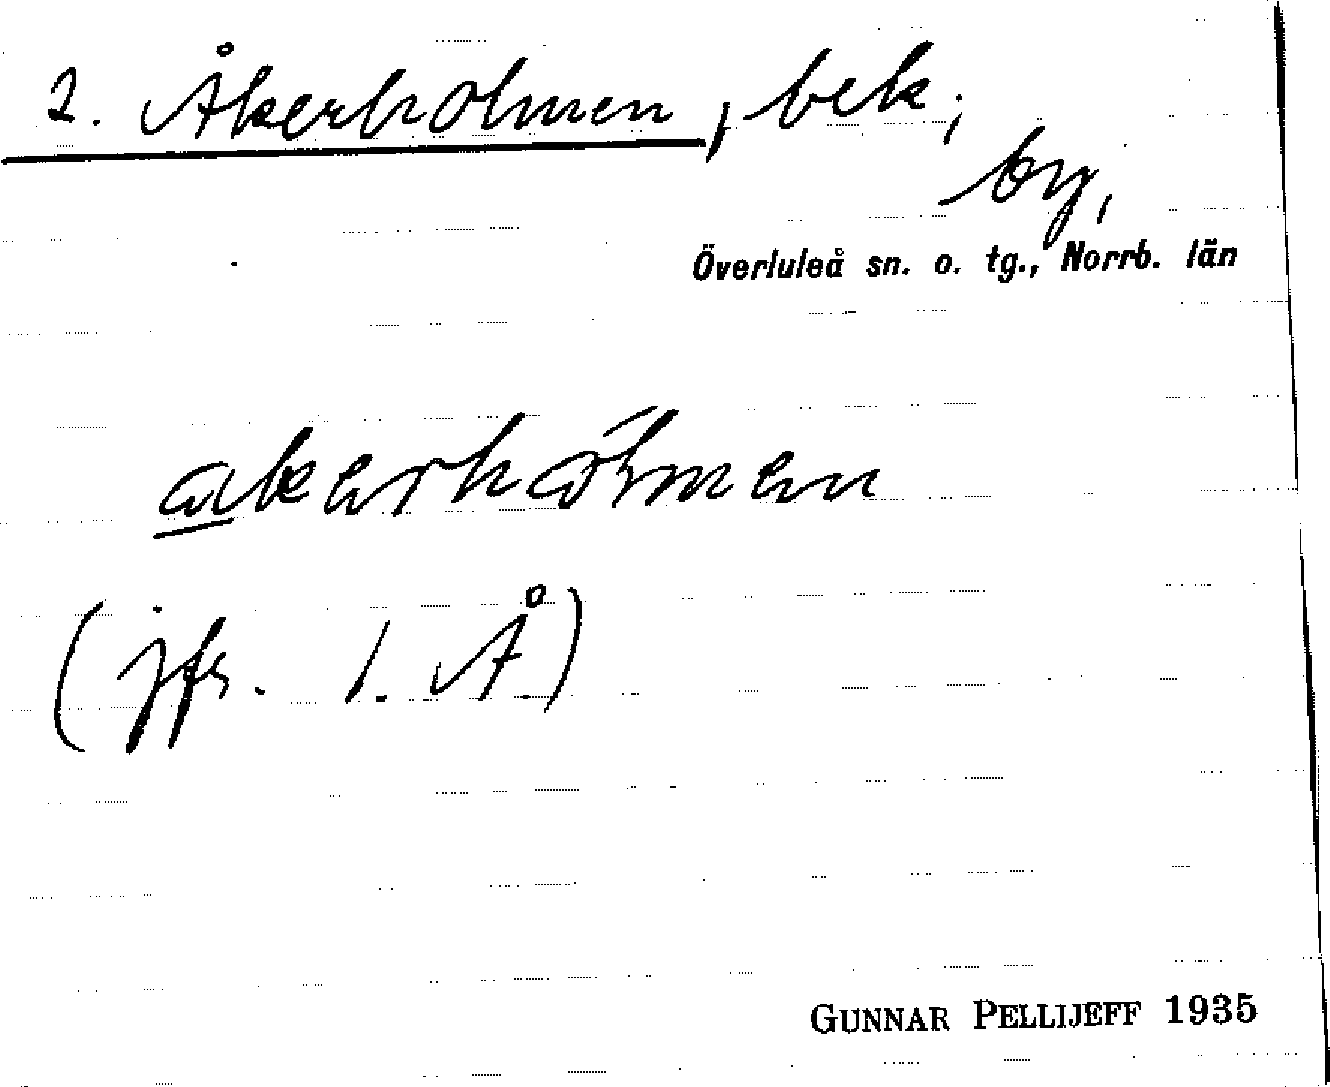 2. Åkerholmen, bek,
by,
Överluleå sn. o. tg., Norrb. län
akerhólmen
(jfr. 1. Å.)
GUNNAR PELLIJEFF 1935